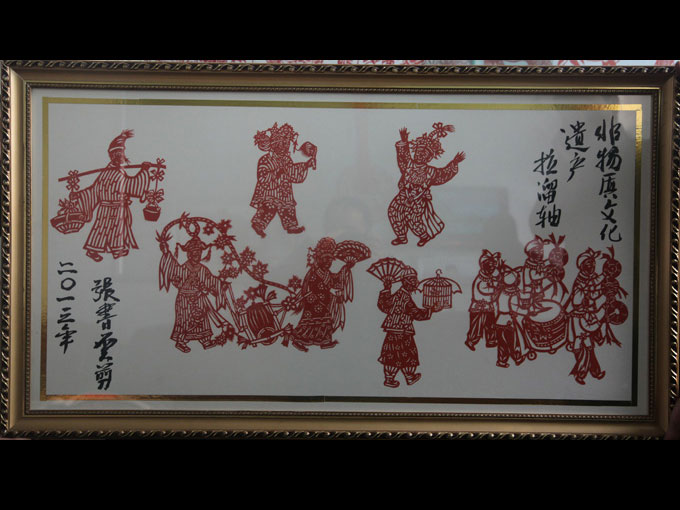 非物质文化
遗产
拉溜轴
张書雲剪
二〇一三年